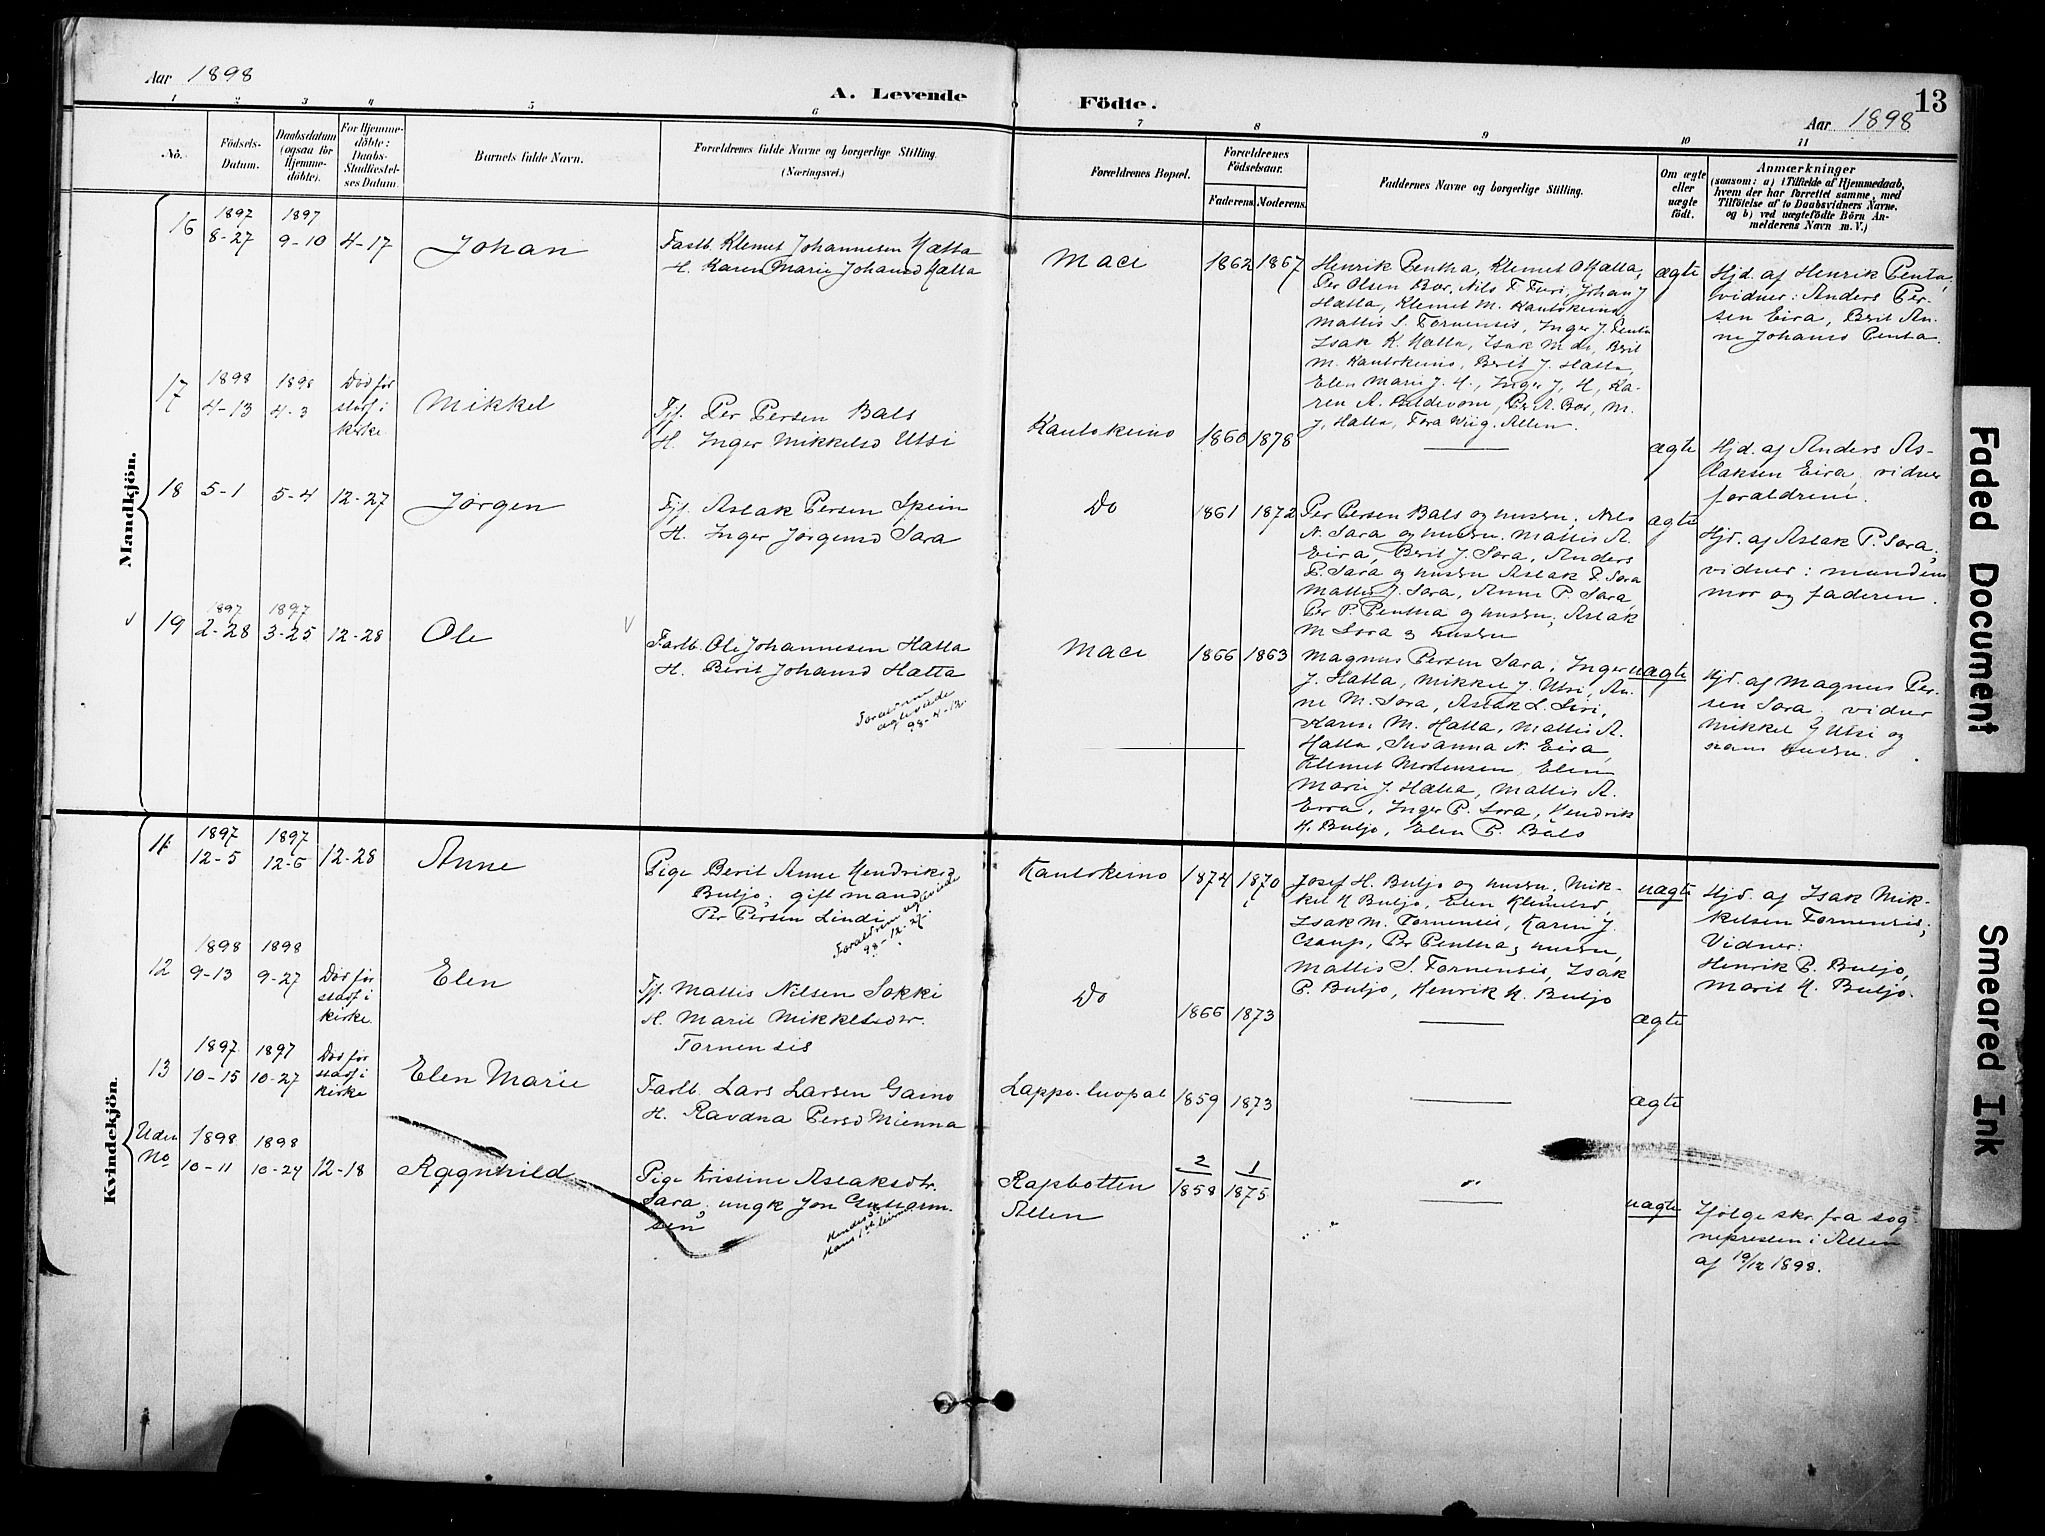 Aar 1898
A. Levende
Födte.
13
Aar 1898
1 2 3 4 5 6 7 8 9 10 11
No.
Födsels-
Datum.
Daabsdatum
(ogsaa for
Hjemme-
döbte).
For Hjemme-
döbte:
Daabs-
Stadfæstel-
ses Datum.
Barnets fulde Navn.
Forældrenes fulde Navne og borgerlige Stilling.
(Næringsvei.)
Forældrenes Bopæl.
Forældrenes
Födselsaar.
Faderens. Moderens.
Faddernes Navne og borgerlige Stilling.
Om ægte
eller
uægte
födt.
Anmærkninger
(saasom: a) i Tilfælde af Hjemmedaab,
hvem der har forrettet samme, med
Tilföielse af to Daabsvidners Navne,
og b) ved uægtefödte Börn An-
melderens Navn m. V.)
Mandkjön.
16
1897
8-27
1897
9-10
4-17
Johan
Fastb. Klemet Johannesen Hætta
H. Karen Marie Johansd Hætta
Maci
1862
1867
Henrik Pentha, Klemet O Hætta,
Per Olsen Bær, Nils T. Turi, Johan J
Hatta, Klemet M. Kautokeino
Mattis S. Tornensis, Inger J. Penta
Isak K. Hætta, Isak M do, Berit
M. Kautokeino, Berit J. Hatta,
Elen Marie J. H., Inger J. H, Ka-
ren A. Beldevom, Per A. Bær, M.
J, Hatta, Tora Wiig. Alten.
ægte
Hjd. af Henrik Penta;
vidner: Anders Per-
sen Eira, Berit An-
ne Johansd Penta
17
1898
4-13
1898
4-3
Død før
stadf i
kirke
Mikkel
Fjf. Per Persen Bals
H. Inger Mikkelsd Utsi
Kautokeino
1860
1878
ægte
Hjd. af Anders As-
laksen Eira, vidner
forældrene.
18
5-1
5-4
12-27
Jørgen
Fjf. Aslak Persen Spein
H. Inger Jørgensd Sara
Do
1861
1872
Per Persen Bals og hustru, Nils
N. Sara og hustru. Mattis A.
Eira, Berit J. Sara, Anders
P. Sara og hustru Aslak P. Sara
Mattis J. Sara, Anne P. Sara,
Per P. Pentha og hustru, Aslak
M Sara og hustru
ægte
Hjd. af Aslak P. Sara;
vidner: mandens
mor og faderen.
19
1897
2-28
1897
3-25
12-28
Ole
Fastb. Ole Johannesen Hatta
H. Berit Johansd Hatta
Forældrene
ægteviede
98-4-12.
Maci
1866
1863
Magnus Persen Sara, Inger
J. Hatta, Mikkel J. Utsi, An-
ne M. Sara, Aslak L. Siri,
Karen M. Hatta, Mattis A.
Hatta, Susanna N. Eira,
Klemet Mortensen, Elen
Marie J. Hætta, Mattis A.
Eira, Inger P. Sara, Hendrik
H. Buljo, Elen P. Bals
uægte
Hjd. af Magnus Per-
sen Sara, vidner
Mikkel J Utsi og
hans hustru.
Kvindekjön.
11
1897
12-5
1897
12-6
12-28
Anne
Pige Berit Anne Hendriksd
Buljo; gift mand
Per Persen Lindi
Forældrene ægteviede
98-12-27.
Kautokeino
1874
1870
Josef H. Buljo og hustru, Mik-
kel H Buljo, Elen Klemetsd,
Isak M. Tornensis, Karen J.
Per Pentha og hustru,
Mattis S. Tornensis, Isak
P. Buljo, Henrik H. Buljo
uægte
Hjd. af Isak Mik-
kelsen Tornensis;
Vidner:
Henrik P. Buljo,
Marit H. Buljo.
12
1898
9-13
1898
9-27
Død før
stadf i
kirke.
Elen
Fjf. Mattis Nilsen Sokki
H. Marit Mikkelsdtr.
Tornensis
Do
1866
1873
ægte
13
1897
10-15
1897
10-27
Død før
stadf i
kirke
Elen Marie
Fastb. Lars Larsen Gaino
H. Ravdna Persd Mienna
Lappoluopal
1859
1873
ægte
Uden
No
1898
10-11
1898
10-24
12-18
Ragnhild
Pige Kristine Aslaksdtr.
Sara, ungk Jon Guttorm-
sen
Rapbotten
Alten
2
1858
1
1875
uægte
Ifølge skr. fra sog-
nepresten i Alten
af 19/12 1898.
Faded Document
Smeared Ink